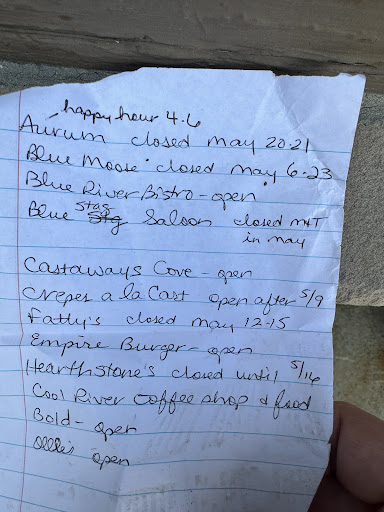 happy hour 4-6
Aurum closed may 20-21
Blue Moose closed may 6-23
Blue River Bistro - open
Blue Stag Saloon closed M&T
in may
Castaways Cove - open
Crepes a la Cart open after 5/9
Fatty's closed may 12-15
Empire Burger - open
Hearthstone's closed until 5/16
Cool River coffee shop & food
Bold - open
Ollie's open